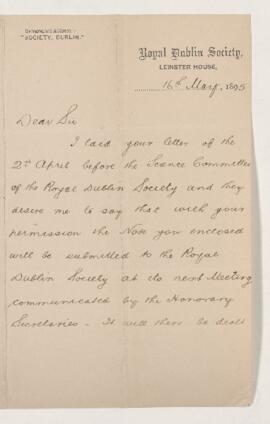 "SOCIETY, DUBLIN."
Royal Dublin Society,
LEINSTER HOUSE,
16th May, 1895
Dear Sir
I laid your letter of the
2nd April before the Science Committee
of the Royal Dublin Society and they
desire me to say that with your
permission the Note you enclosed
will be submitted to the Royal
Dublin Society at its next Meeting
communicated by the Honorary
Secretaries – It will then be dealt